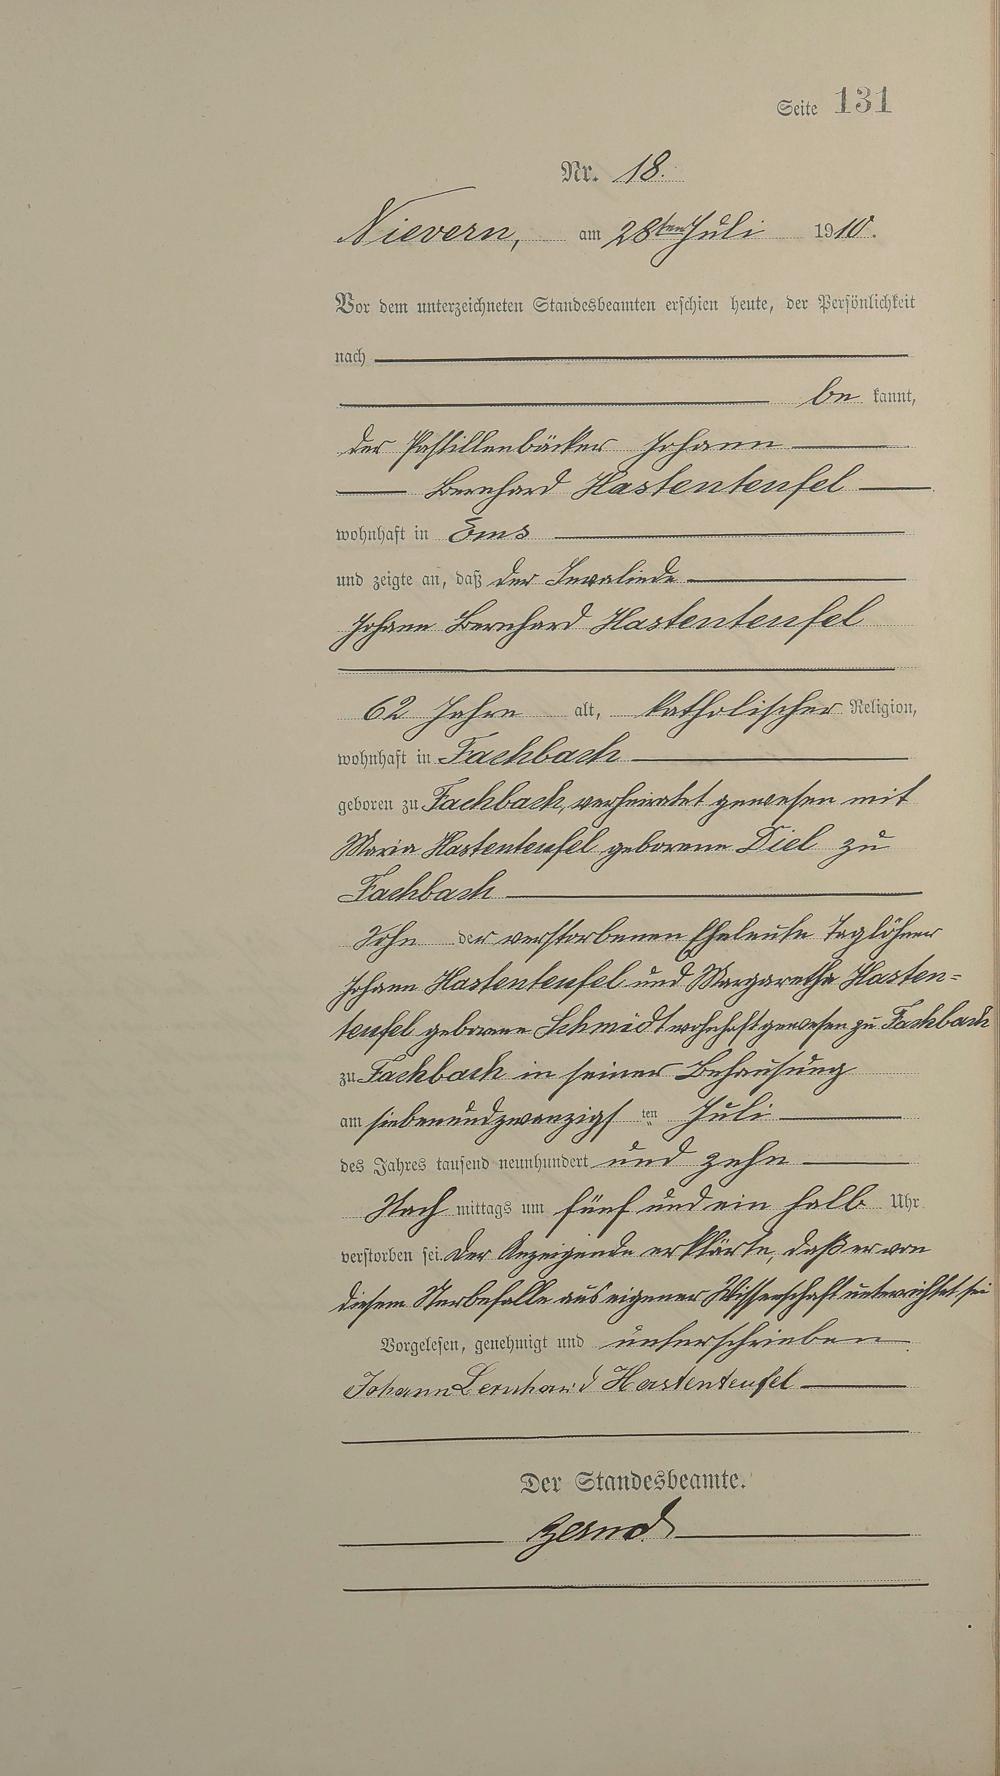 Seite 131
Nr. 18.
Nievern, am 28ten Juli 1910.
Vor dem unterzeichneten Standesbeamten erschien heute, der Persönlichkeit
nach
be kannt,
der Pastillenbäcker Johann
Bernhard Hastenteufel
wohnhaft in Ems
und zeigte an, daß der Invaliede
Johann Bernhard Hastenteufel
62 Jahre alt, katholischer Religion,
wohnhaft in Fachbach
geboren zu Fachbach, verheiratet gewesen mit
Maria Hastenteufel geborene Diel zu
Fachbach
Sohn der verstorbenen Eheleute Taglöhner
Johann Hastenteufel und Margaretha Hasten-
teufel geborene Schmidt wohnhaft gewesen zu Fachbach
zu Fachbach in seiner Behausung
am siebenundzwanzigs ten Juli
des Jahres tausend neunhundert und zehn
Nach mittags um fünf und ein halb Uhr
verstorben sei. Der Anzeigende erklärte, daß er von
diesem Sterbefalle aus eigener Wissenschaft unterrichtet sei
Vorgelesen, genehmigt und unterschrieben
Johann Bernhard Hastenteufel
Der Standesbeamte.